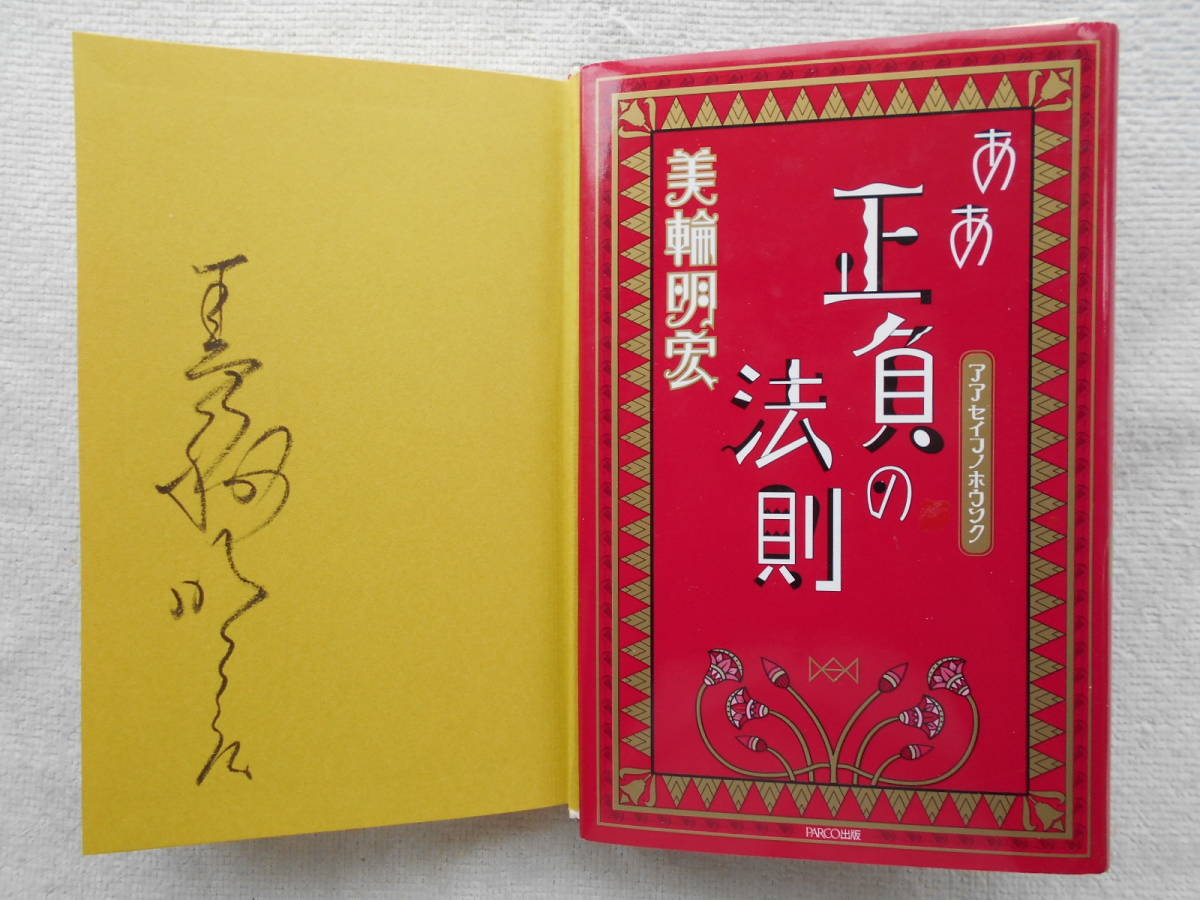 ああ
正負の
法則
アアセイフノホウソク
美輪明宏
PARCO出版
美輪明宏